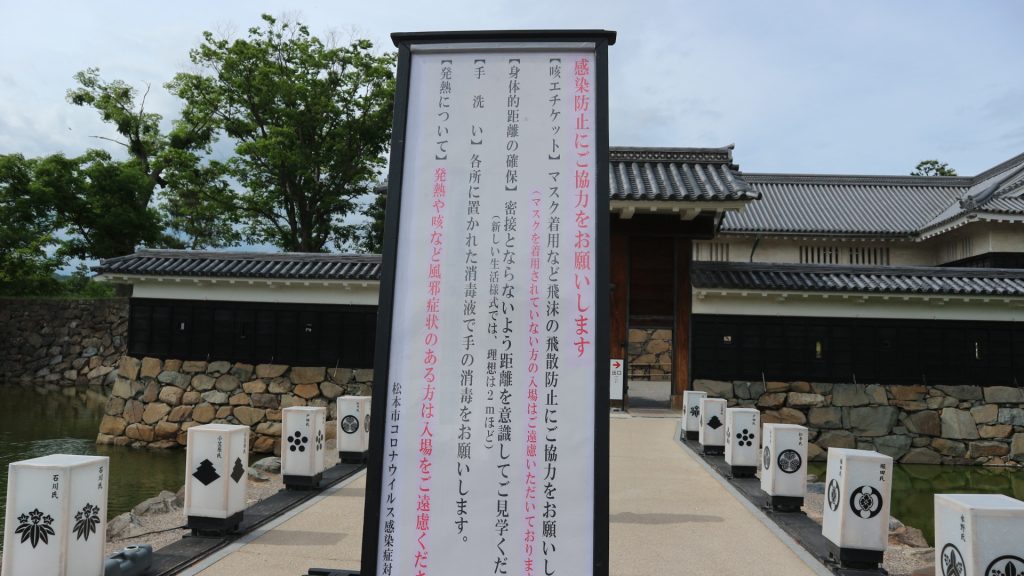 感染防止にご協力をお願いします
【咳エチケット】マスク着用など飛沫の飛散防止にご協力をお願いし
(マスクを着用されていない方の入場はご遠慮いただいておりま
【身体的距離の確保】密接とならないよう距離を意識してご見学くだ
(新しい生活様式では、理想は2mほど)
【手洗い】各所に置かれた消毒液で手の消毒をお願いします。
【発熱について】発熱や咳など風邪症状のある方は入場をご遠慮くださ
松本市コロナウイルス感染症対
出口
石川氏
石川氏
小笠原氏
堀田氏
水野氏